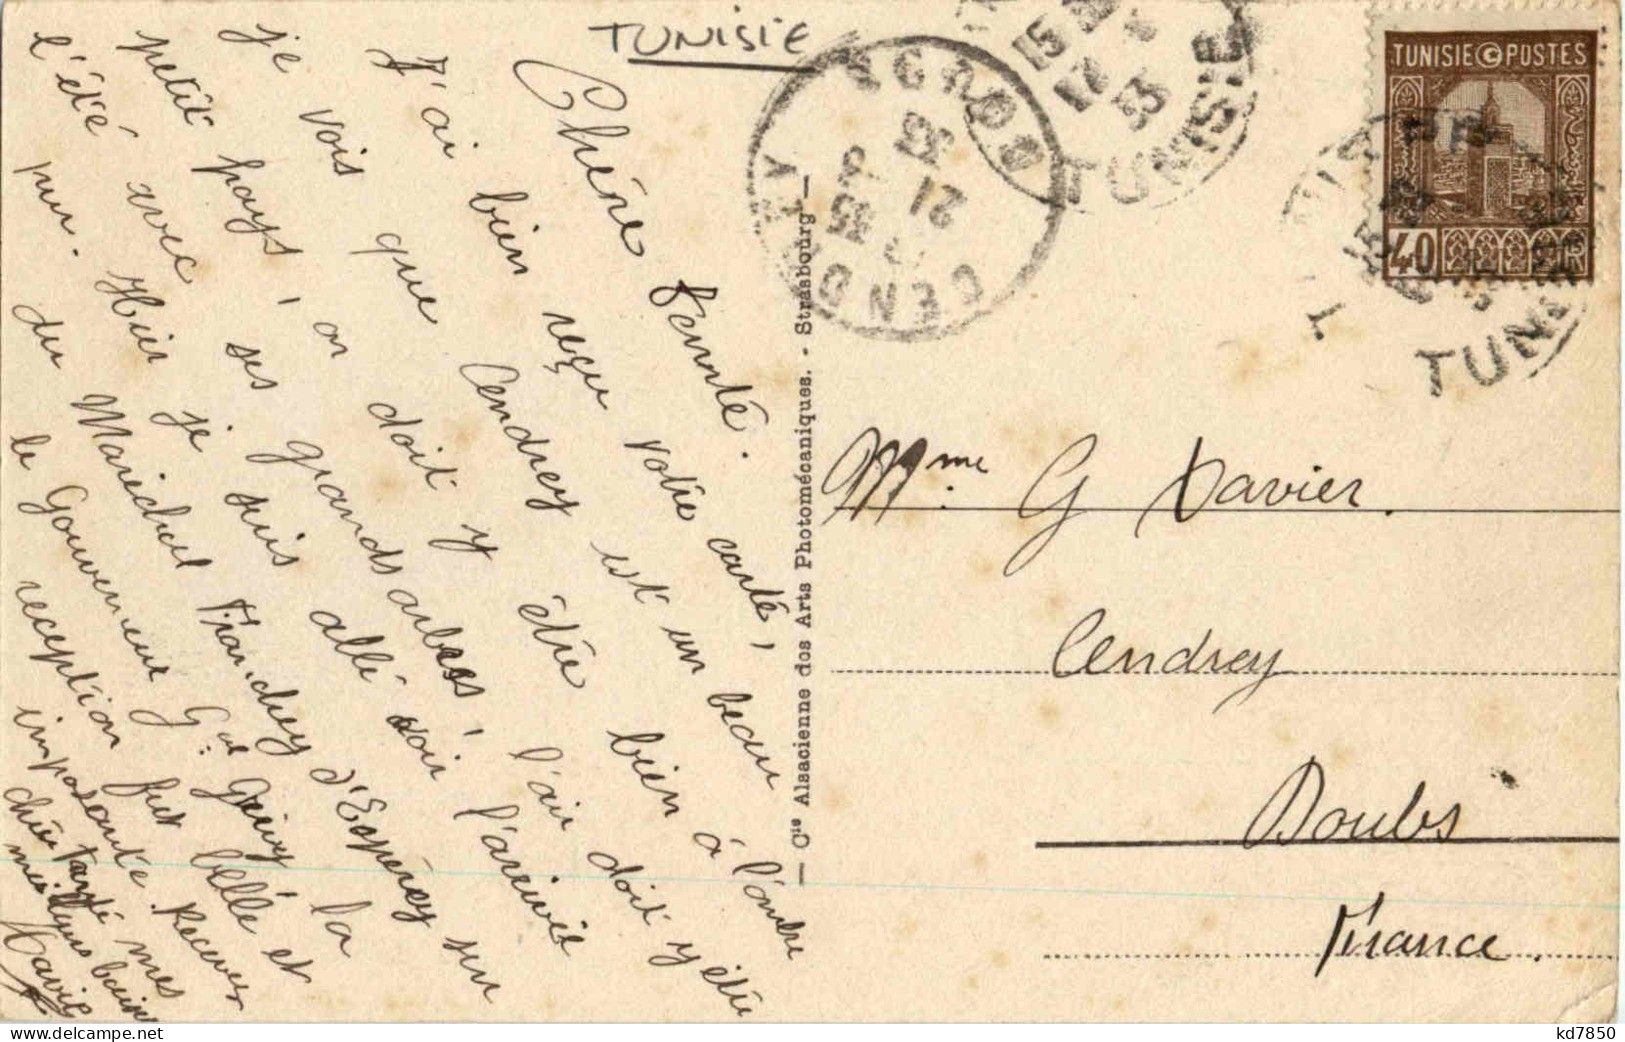 TUNISIE
Chère Tante.
J'ai bien reçu votre carte,
je vois que Cendrey est un beau
petit pays, on doit y être bien à l'ombre
l'été avec ses grands arbres, l'air doit y être
pur. Hier je suis allé voir l'arrivée
du Maréchal Franchey d'Espérey sur
le Gouverneur Gal la
réception fut belle et
imposante. Recevez
chère tante mes
meilleurs baisers
Xavier
— Cie Alsacienne des Arts Photomécaniques. - Strasbourg —
CENDREY
21
35
15
TUNISIE
TUNISIE © POSTES
40
RF
TUNIS
Mme G Xavier.
Cendrey
Doubs
France.
kd7850